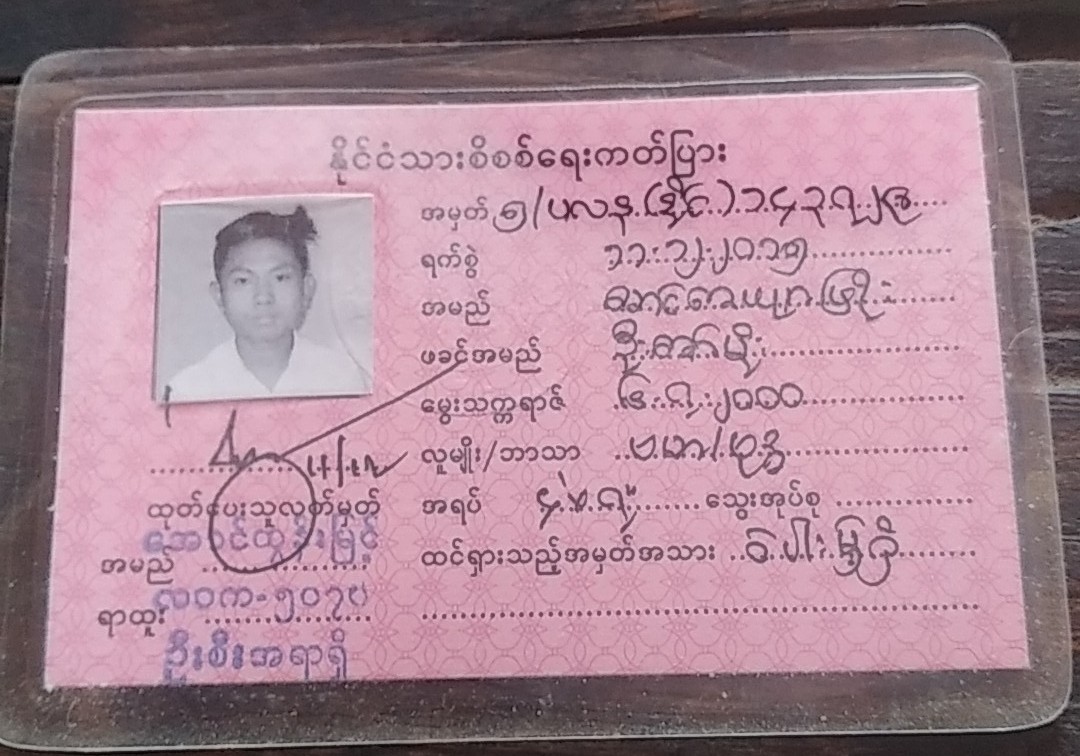 နိုင်ငံသားစိစစ်ရေးကတ်ပြား
အမှတ် ၅/ပလန(နိုင်)၁၄၃၇၂၉
ရက်စွဲ ၁၁.၁၂.၂၀၁၅
အမည်
ဖခင်အမည် ဦးဇော်မိုး
မွေးသက္ကရာဇ် ၆.၇.၂၀၀၀
လူမျိုး/ဘာသာ ဗမာ/ဗုဒ္ဓ
အရပ် ၄'၈" သွေးအုပ်စု
ထင်ရှားသည့်အမှတ်အသား ဝဲပါးမှဲ့
ထုတ်ပေးသူလက်မှတ်
အမည် အောင်ထွန်းမြင့်
ရာထူး လဝက-၅၀၇၆
ဦးစီးအရာရှိ